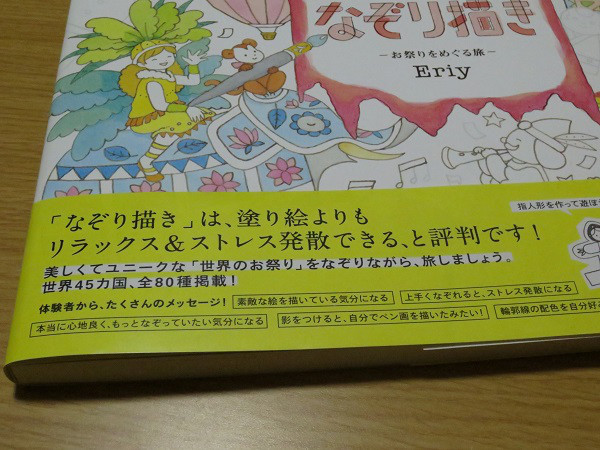 なぞり描き
－お祭りをめぐる旅－
Eriy
指人形を作って遊ぼ
「なぞり描き」は、塗り絵よりも
リラックス＆ストレス発散できる、と評判です！
美しくてユニークな「世界のお祭り」をなぞりながら、旅しましょう。
世界45カ国、全80種掲載！
体験者から、たくさんのメッセージ！
素敵な絵を描いている気分になる
上手くなぞれると、ストレス発散になる
本当に心地良く、もっとなぞっていたい気分になる
影をつけると、自分でペン画を描いたみたい！
輪郭線の配色を自分好